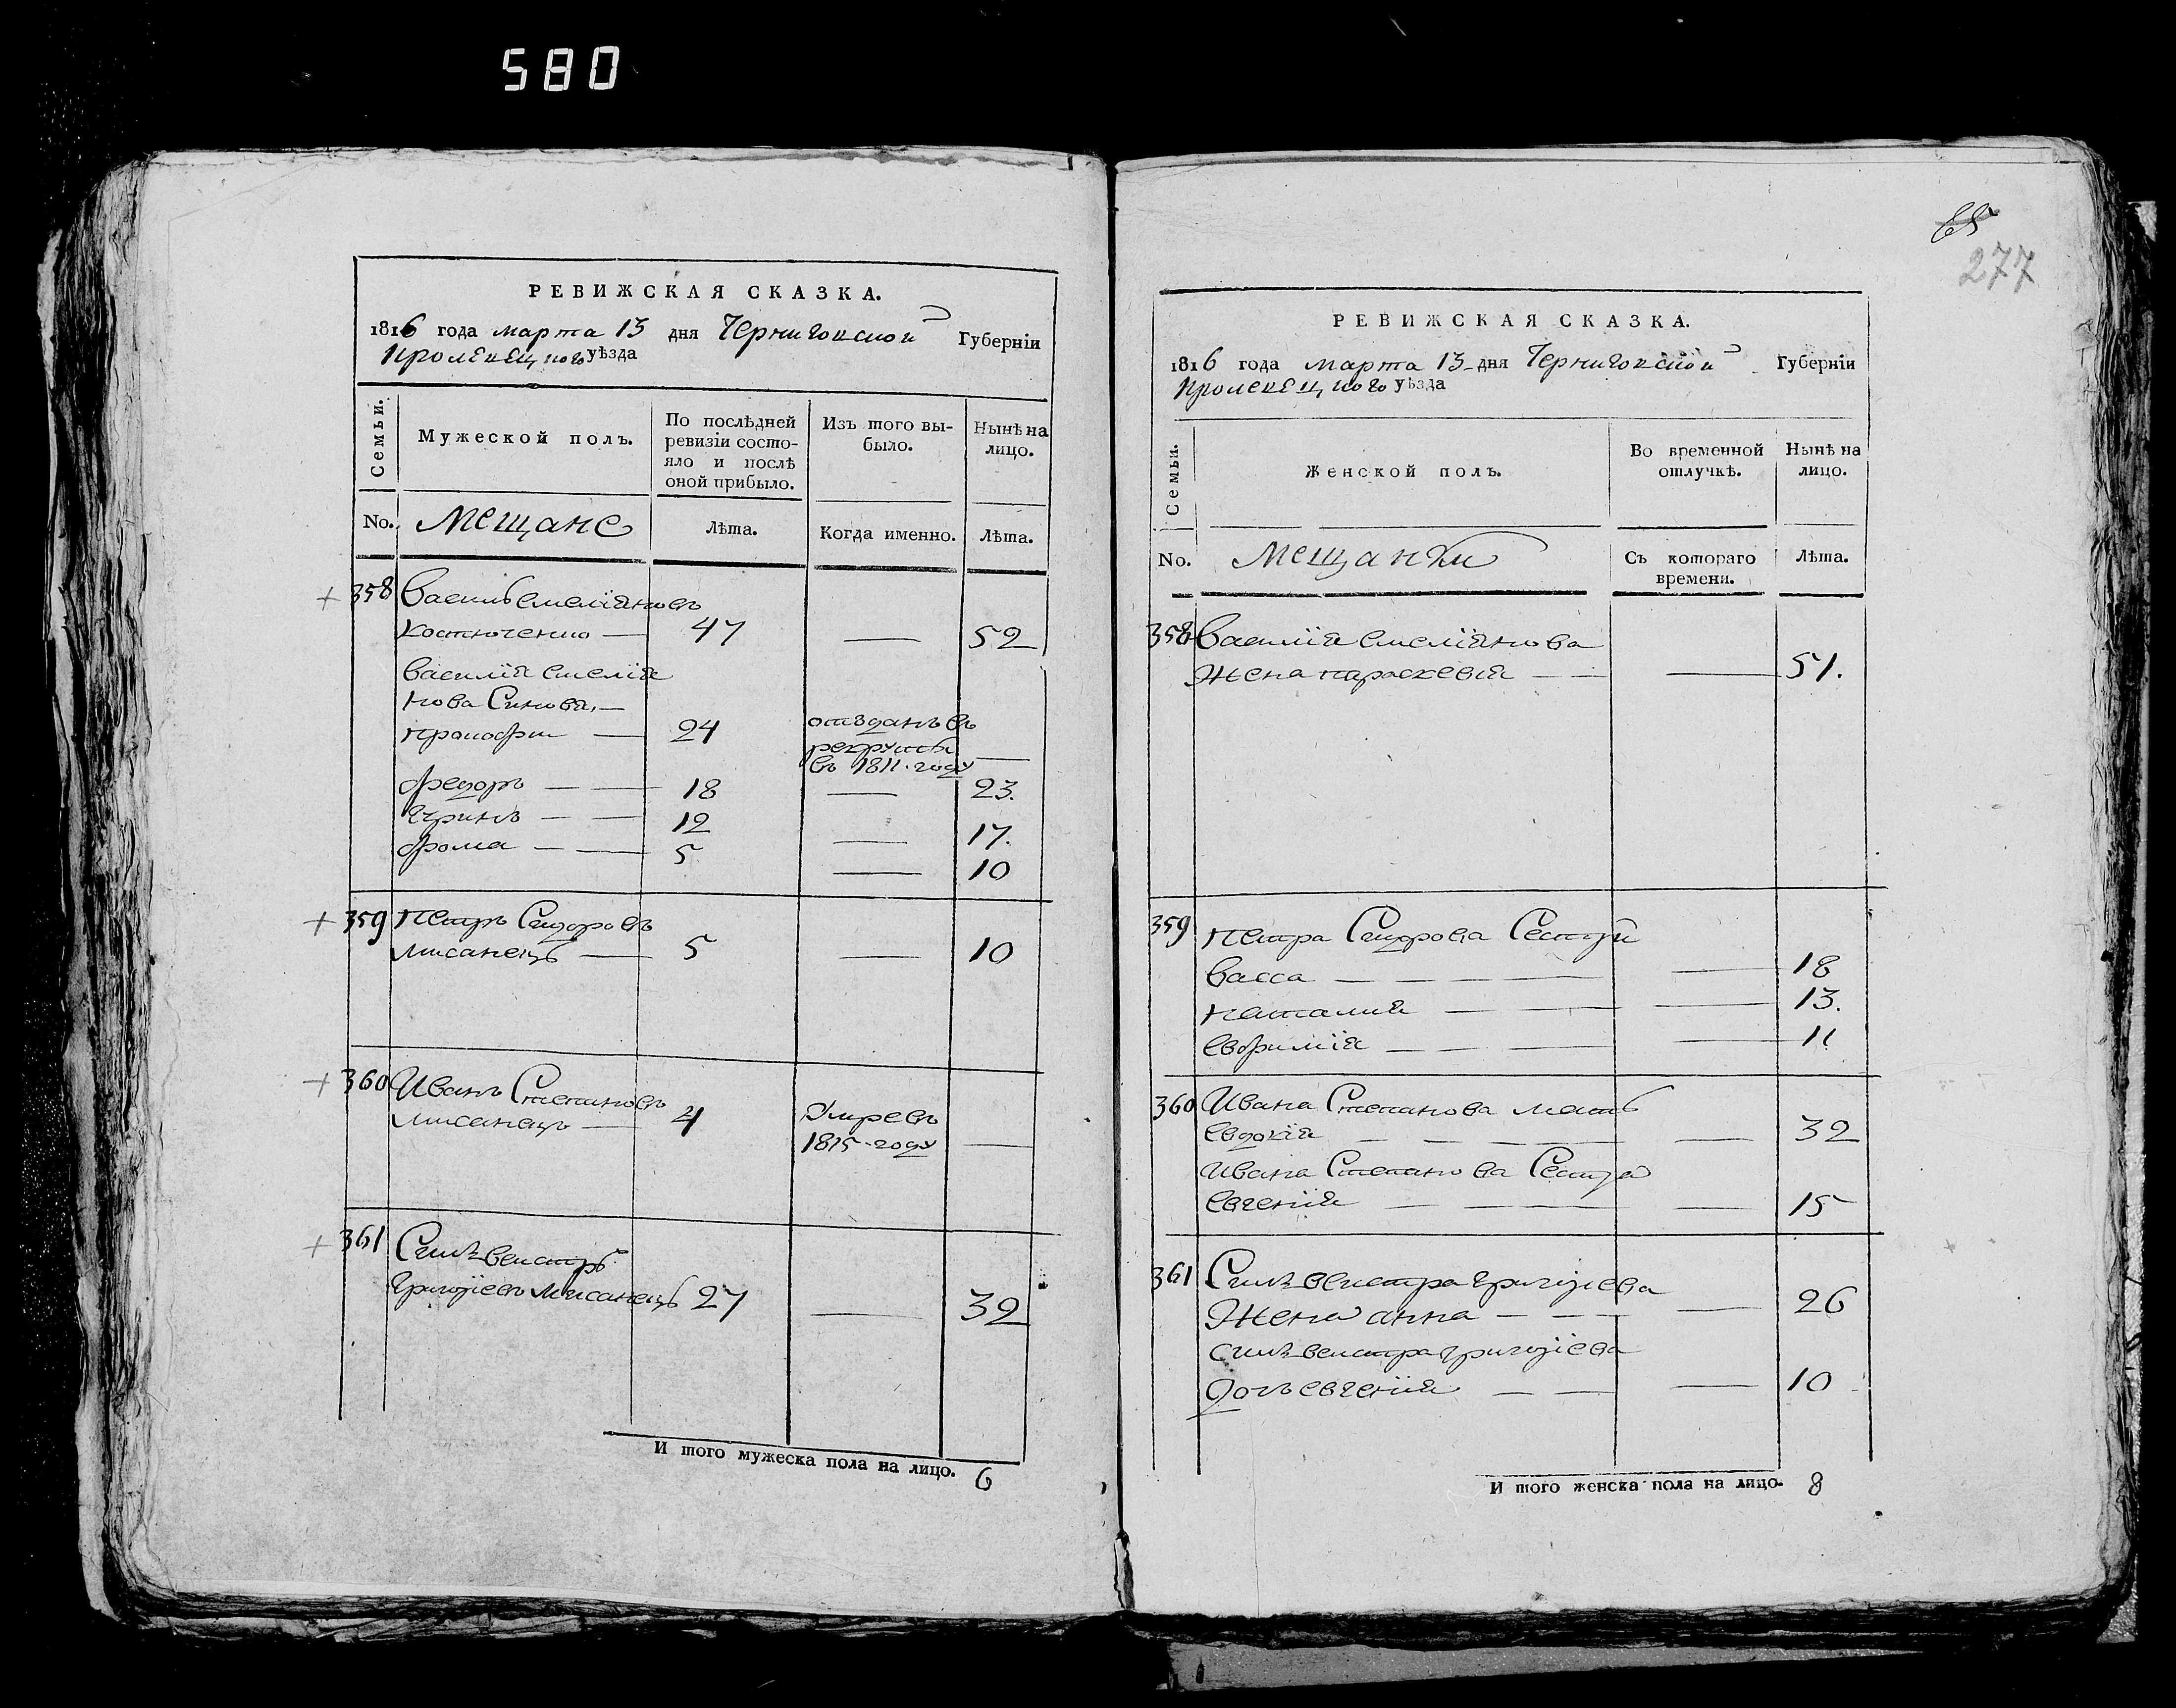 580
РЕВИЖСКАЯ СКАЗКА.
1816 года марта 13 дня Черниговской Губерніи
Кролевецкого уѣзда
Семьи.
Мужеской полъ.
По послѣдней ревизіи состояло и послѣ оной прибыло.
Изъ того выбыло.
Нынѣ на лицо.
No. Мещане
Лѣта.
Когда именно.
Лѣта.
358 Василь Емеліяновъ
Костюченко — 47 — 52
Василія Емелія
нова Синовя, —
Прокофи — 24 отъданъ въ
рекруты —
въ 1811 году
Федоръ — — 18 — 23.
— — 12 — 17.
Фома — — 5 — 10
359 Петръ Сидоровъ
Мисанецъ — 5 — 10
360 Иванъ Степановъ
Мисанецъ — 4 Умре въ
1815 году —
361 Силвенстръ
Григоріевъ Мисанецъ 27 — 32
И того мужеска пола на лицо. 6
65
277
РЕВИЖСКАЯ СКАЗКА.
1816 года марта 13 дня Черниговской Губерніи
Кролевецкого уѣзда
Семьи.
Женской полъ.
Во временной отлучкѣ.
Нынѣ на лицо.
No. Мещанки
Съ котораго времени.
Лѣта.
358 Василія Емеліянова
Жена Параскевія — — — 51.
359 Петра Сидрова Сестри
Васса — — — — 18
Наталия — — — 13.
Евфимія — — — — 11
360 Ивана Степанова мать
Евдокія — — — — 32
Ивана Степанова Сестра
Евгенія — — — — 15
361 Силвенстра Григоріева
Жена анна — — — 26
Силвенстра Григоріева
Дочь евгенія — — — 10
И того женска пола на лицо. 8